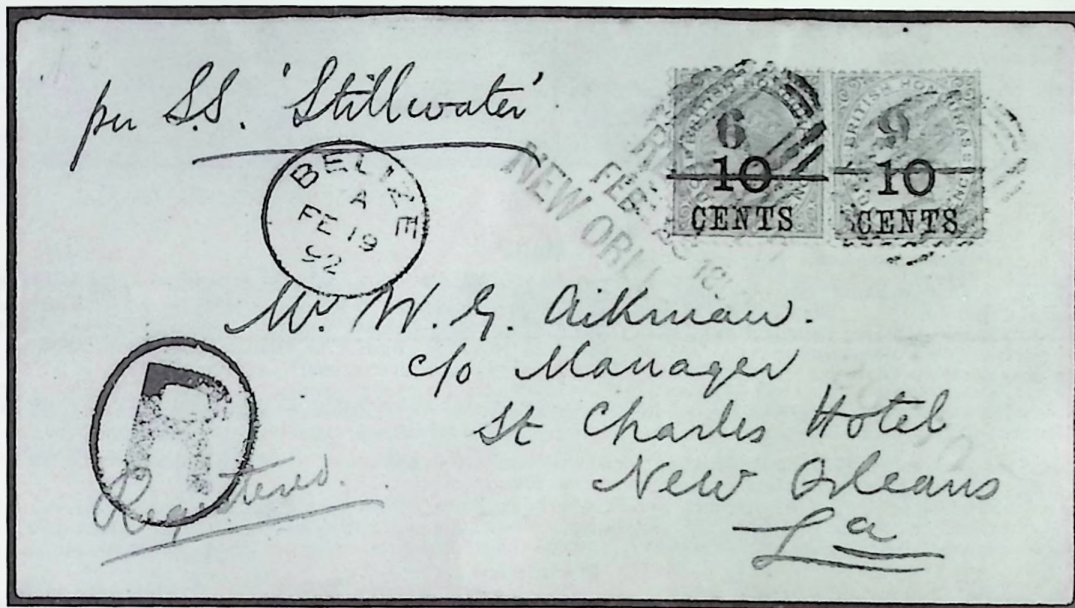 per S.S. 'Stillwater'
BELIZE
A
FE 19
92
NEW ORL
FEB
6
10
CENTS
BRITISH HONDURAS
9
10
CENTS
Mr. W. G. Aikman.
c/o Manager
St Charles Hotel
New Orleans
La
R
Registered.